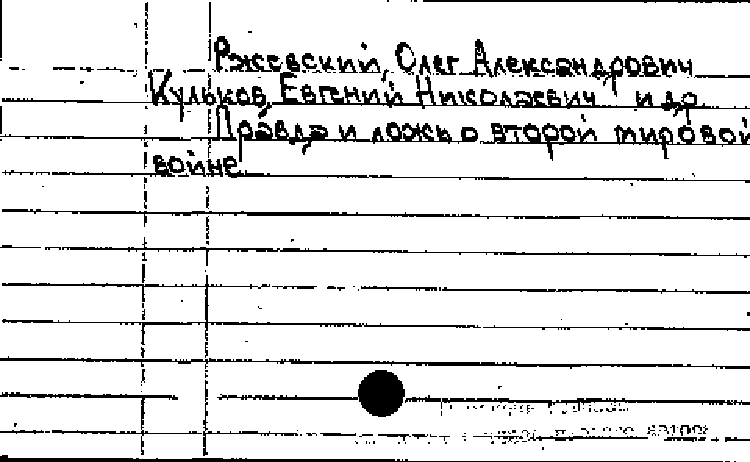 Ржевский, Олег Александрович
Кульков, Евгений Николаевич и др.
Правда и ложь о второй мировой
войне